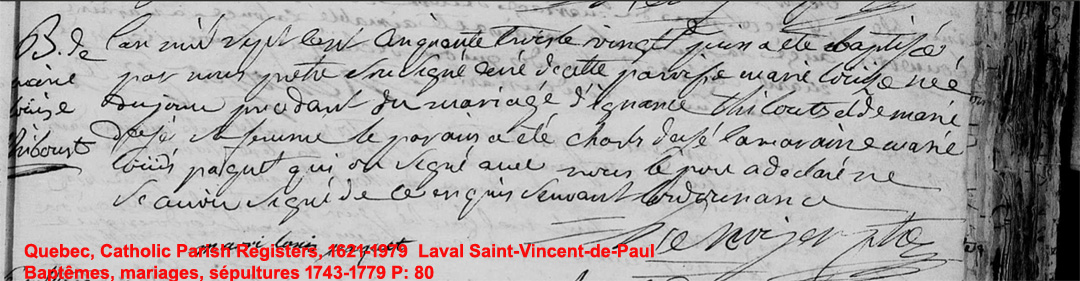 B. de
marie
louise
thiboust
Lan mil sept cent cinquante trois le vingt juin a été baptisé
par nous prêtre sousigné curé de cette paroisse marie louise né
du jour precedant du mariage d'ignance thiboust et de marie
sa femme le parain a été charle la maraine marie
louis paquet qui on signé avec nous le pere a declaré ne
scavoir signé de ce enquis suivant l'ordonnance
marie louis paquet
ptre
Quebec, Catholic Parish Registers, 1621-1979 Laval Saint-Vincent-de-Paul
Baptêmes, mariages, sépultures 1743-1779 P: 80